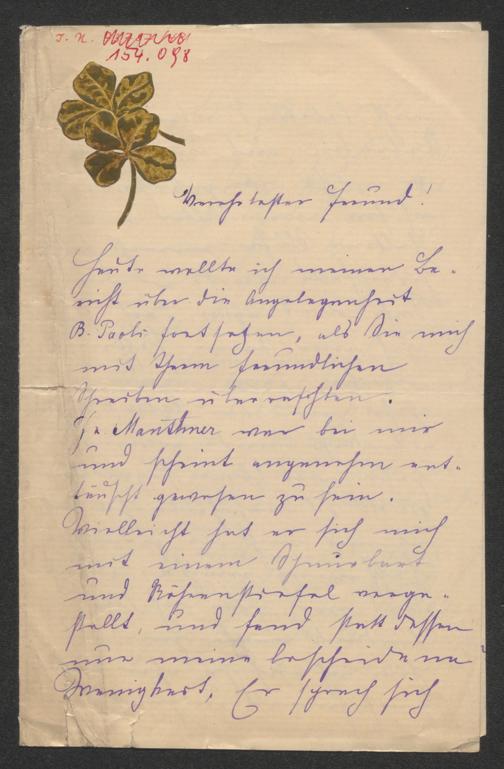 I. N.
154.098
Verehrtester Freund!
Heute wollte ich meinen Be-
richt über die Angelegenheit
B. Paoli fortsetzen, als Sie mich
mit Ihrem freundlichen
Schreiben überraschten.
Ja Mauthner war bei mir
und scheint angenehm ent-
täuscht gewesen zu sein.
Vielleicht hat er sich mich
mit einem Schnurbart
und Röhrenstiefel vorge-
stellt, und fand statt dessen
nur meine bescheidene
Wenigkeit. Er sprach sich